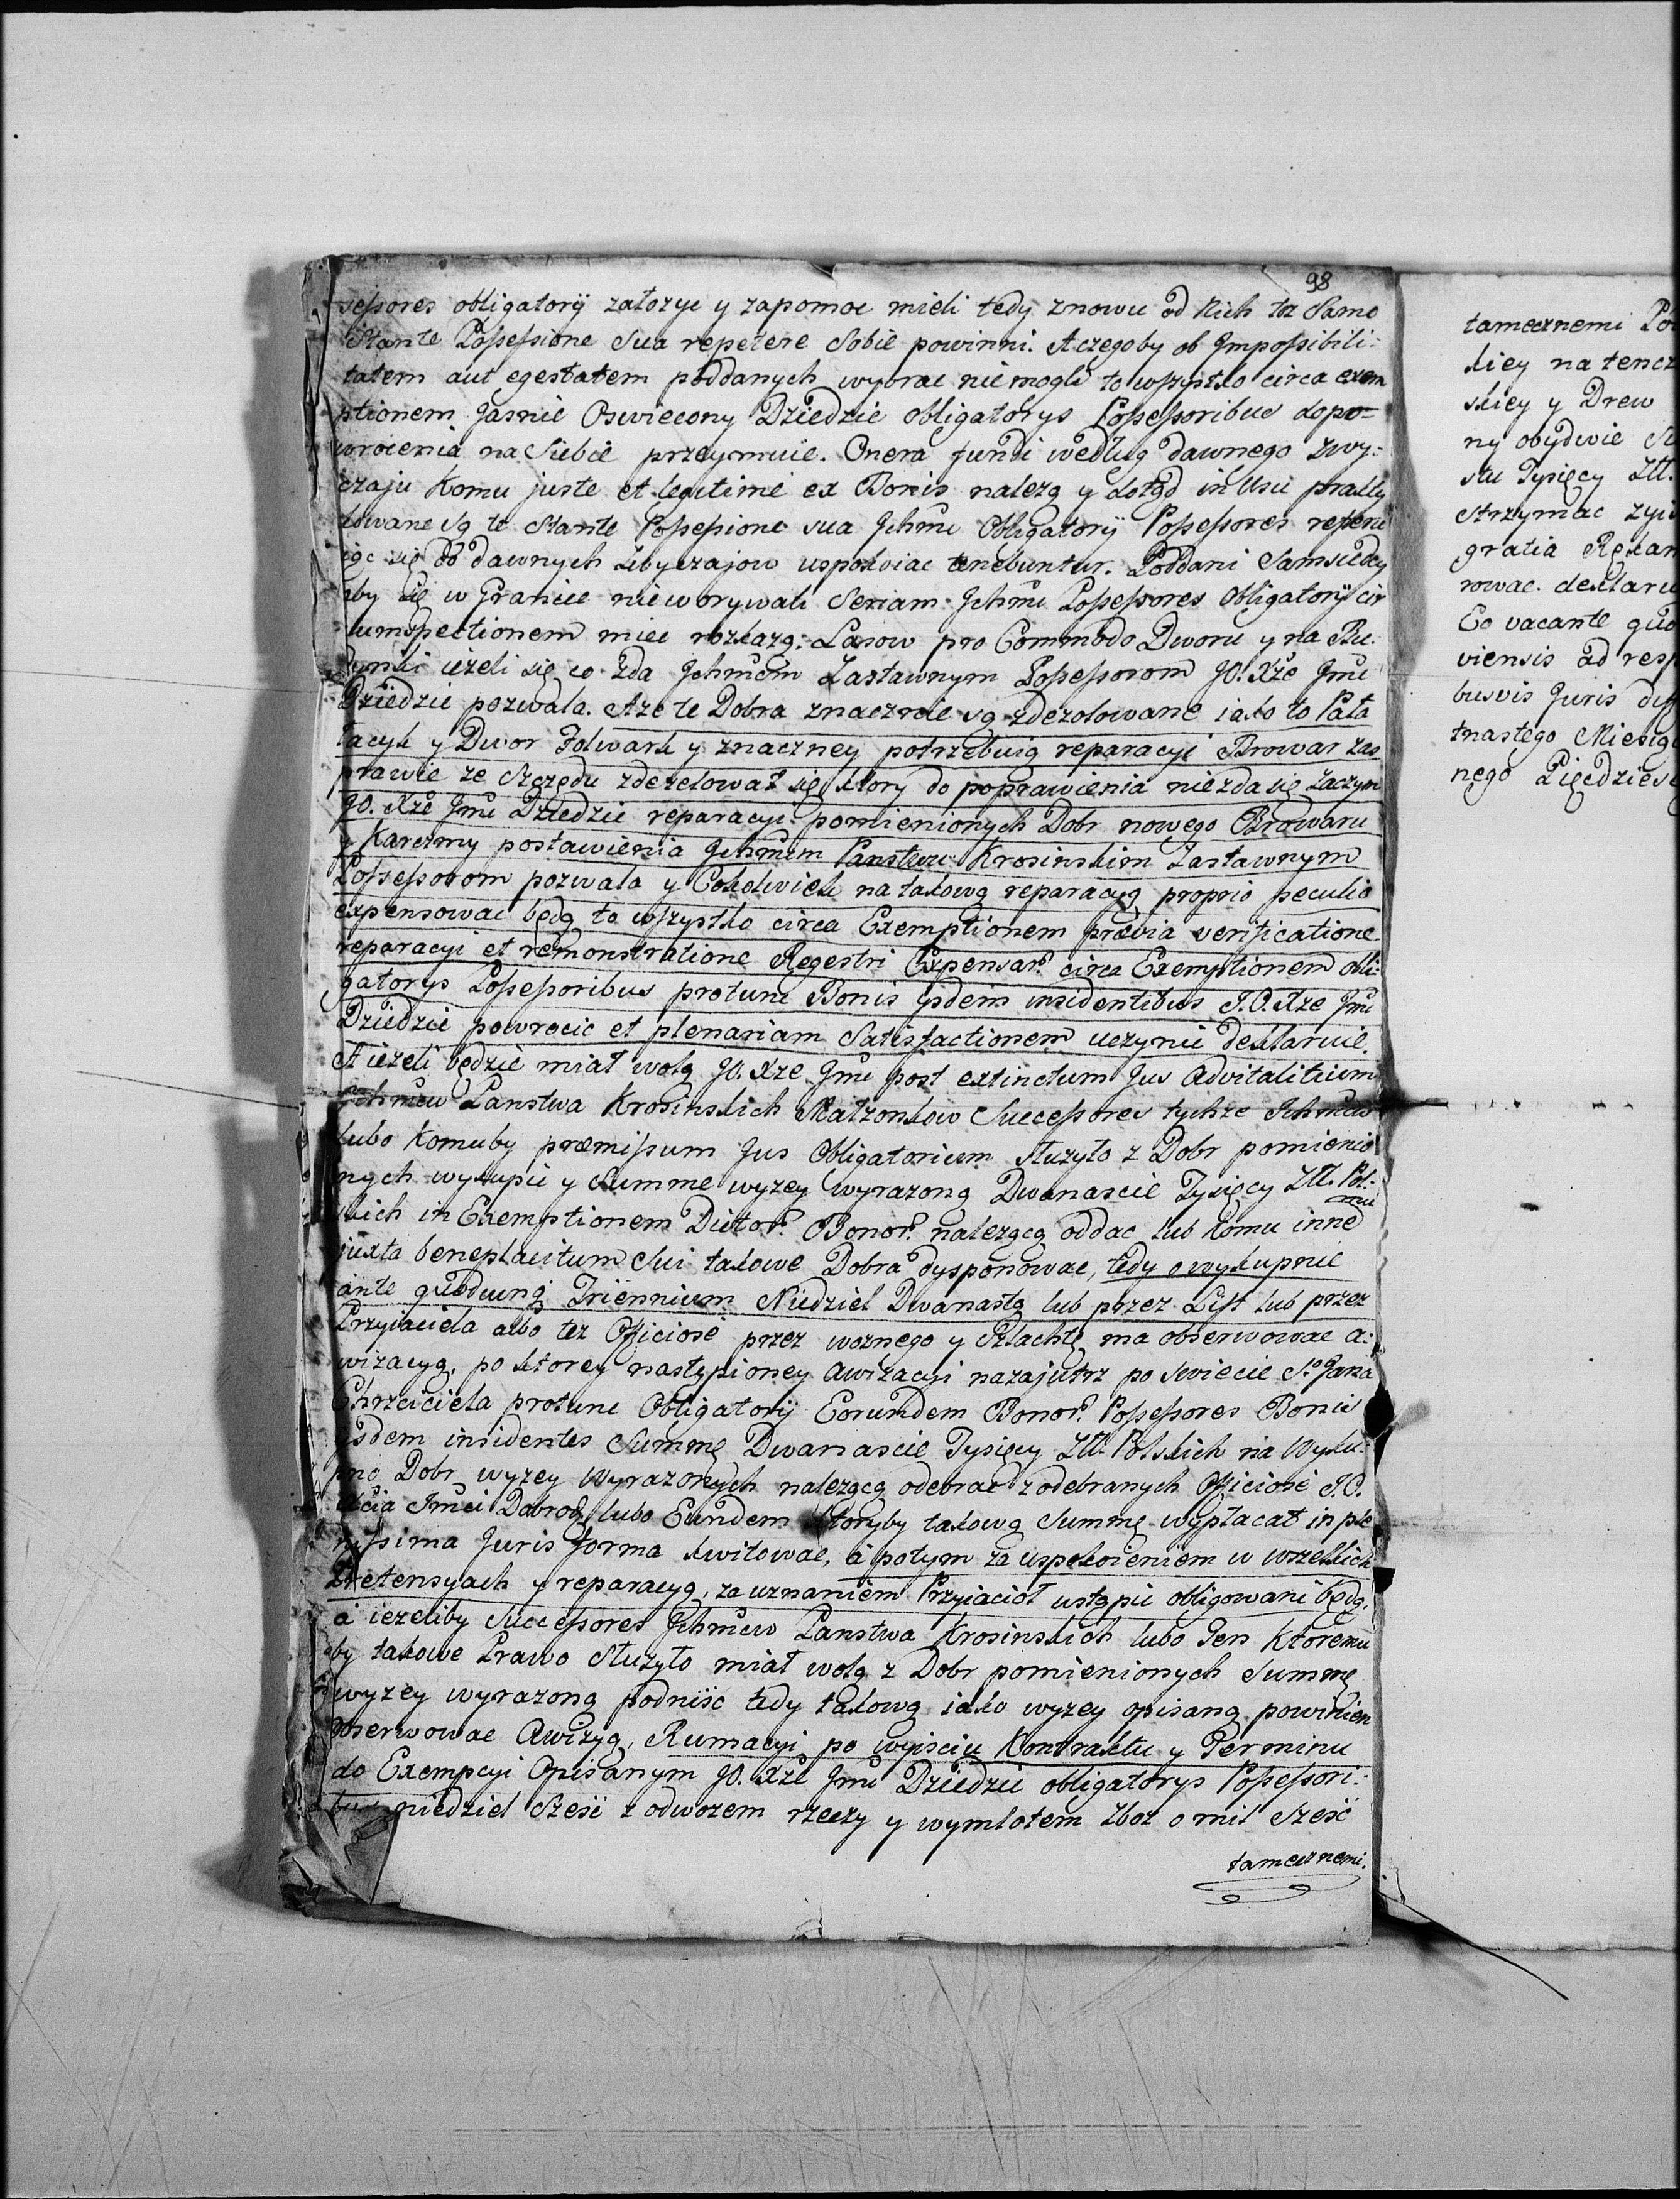 98
sessores obligatorÿ założyc y zapomoc mieli tedy znowu od Nich toż Samo
Stante Possessione Sua repetere Sobie powinni. Aczegoby ob Jmpossibili:
tatem aut egestatem poddanych wybrac niemogli to wszystko circa exem
ptionem Jasnie Oswiecony Dziedzic obligatorys Possessoribus dopo=
wrocenia na Siebie przeymuie. Onera fundi według dawnego zwy:
czaju Komu juste et legitime ex Bonis należą y dotąd in Usu prakty
kowane są te Stante Possessione sua Jchmć Obligatorÿ Possessores
iąc się do dawnych zwyczajow uspokoiac tenebuntur. Poddani Sąmsiedzcy
aby się w Granice nieworywali Seriam Jchmć Possessores Obligatorÿ cir
cumspectionem miec rozkażą. Lasow pro Commodo Dworu y na Bu:
dynki ieżeli się co zda Jchmćm Zastawnym Possessorom JO. Xże Jmć
Dziedzic pozwala. Aże te Dobra znacznie są zdezolowane iako to Pała
łacyk y Dwor Folwark y znaczney potrzebuią reparacyi Browar zas
prawie ze Szczędu zdezelował się ktory do poprawienia niezda się Zaczym
JO. Xże Jmć Dziedzic reparacyi pomienionych Dobr nowego Browaru
y Karczmy postawienia Jchmćm Panstwu Krosinskim Zastawnym
Possessorom pozwala y Cokolwiek na takową reparacyą proprio peculio
expensowac będą to wszystko circa Exemptionem prævia verificatione
reparacyi et remonstratione Regestri Expensar. circa Exemptionem obli:
gatorys Possessoribus protunc Bonis ysdem insidentibus J.O. Xże Jmć
Dziedzic powrocic et plenariam Satisfactionem uczynic deklaruie.
A ieżeli będzie miał wolą JO. Xże Jmć post extinctum Jus Advitalitium
Jchmćw Panstwa Krosinskich Małżonkow Successores tychże Jchmćw
lubo Komuby præmissum Jus Obligatorium służyło z Dobr pomienio
nych wykupic y Summe wyżey wyrażoną Dwanascie Tysięcy Złł. Pol:
skich in Exemptionem Dictor. Bonor. nalezącą oddac lub Komu inne
mu
juxta beneplacitum Sui takowe Dobra dysponowac, tedy o wykupnie
ante quodcunq Triennium Niedziel Dwanastą lub przez List lub przez
Przyiaciela albo tez Officiose przez wożnego y Szlachtę ma obserwowac a:
wizacyą, po ktorey nastąpioney awizacyi nazajutrz po Swiecie Sº. Jana
Chrzciciela protunc Obligatorÿ Eorundem Bonor. Possessores Bonis
ysdem insidentes Summę Dwanascie Tysięcy Złł. Polskich na Wyku:
pno Dobr wyżey Wyrażonych nalezącą odebrac z odebranych Officiose J.O.
Xcia Jmci Dobrodz. lubo Eundem ktoryby takową Summę wypłacał in ple
nissima Juris forma kwitowac, à potym za uspokoieniem w wszelkich
Pretensyach y reparacyą, za uznaniem Przyiacioł ustąpic obligowani będą,
à iezeliby Successores Jchmćw Panstwa Krosinskich lubo Ten Ktoremu
by takowe Prawo Służyło miał wolą z Dobr pomienionych Summę
wyżey wyrażoną podniść tedy takową iako wyżey opisaną powinien
obserwowac Awizyą, Rumacyi po wyisciu Kontraktu y Terminu
do Exempcyi Opisanym JO. Xże Jmć Dziedzic obligatorys Possessori:
bus niedziel Sześć z odwozem rzeczy y wymłotem zboż o mil Sześć
tamecznemi.
tamecznemi
kiey na tencz
skiey y Drew
ny obydwie
stu Tysięcy Złł.
strzymac
gratia
rowac. deklaru
Eo vacante quo
viensis ad resp
busvis Juris
tnastego Miesią
nego Pięcdziesi